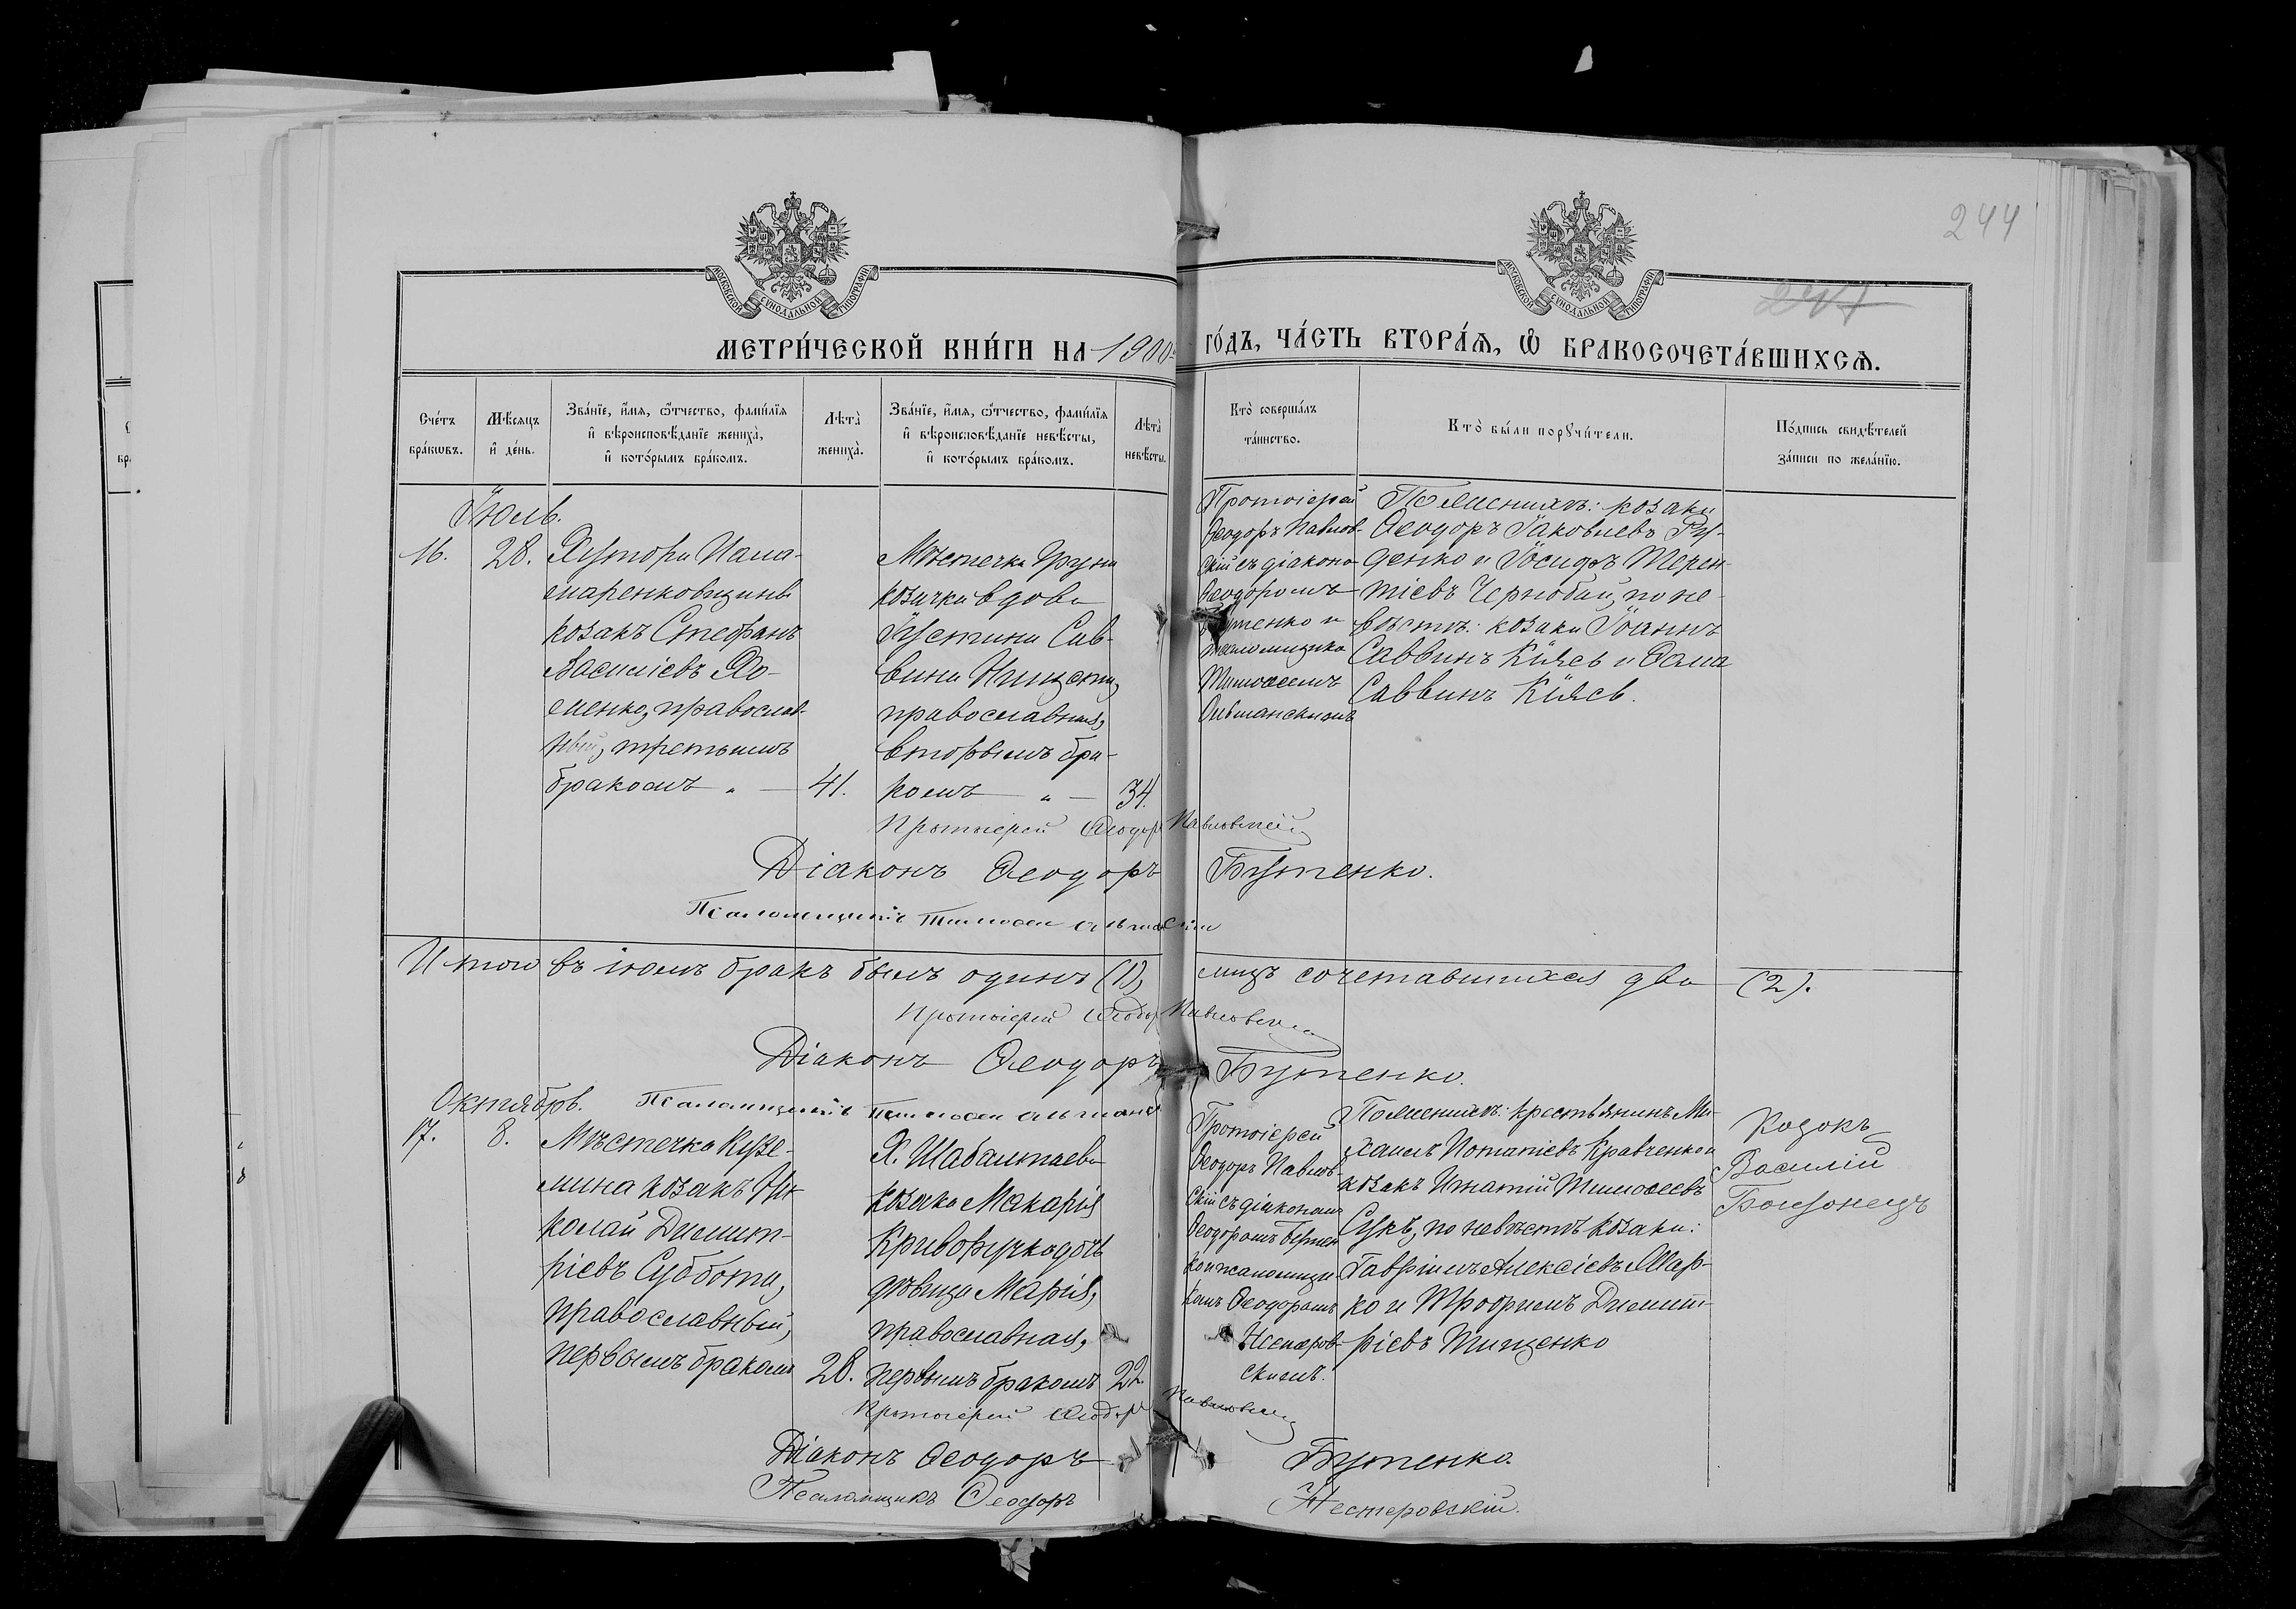 244
МОСКОВСКОЙ СѴНОДАЛЬНОЙ ТИПОГРАФІИ
МОСКОВСКОЙ СѴНОДАЛЬНОЙ ТИПОГРАФІИ
МЕТРИ́ЧЕСКОЙ КНИ́ГИ НА 1900 ГО́ДЪ, ЧА́СТЬ ВТОРА́Ѧ, Ѡ БРАКОСОЧЕТА́ВШИХСѦ.
Сче́тъ
бра́кѡвъ.
Мѣ́сѧцъ
и҆ де́нь.
Зва́нїе, и҆́мѧ, ѻ҆́тчество, фами́лїѧ
и҆ вѣроисповѣ́данїе жениха̀,
и҆ кото́рымъ бра́комъ.
Лѣ́та̀
жениха̀.
Зва́нїе, и҆́мѧ, ѻ҆́тчество, фами́лїѧ
и҆ вѣроисповѣ́данїе невѣ́сты,
и҆ кото́рымъ бра́комъ.
Лѣ́та̀
невѣ́сты.
Кто̀ соверша́лъ
та́инство.
Кто̀ бы́ли порꙋчи́тели.
По́дпись свидѣ́телей
за́писи по жела́нїю.
Іюль.
16.
28.
Хутора
маренковщины
козакъ Стефанъ
Василіевъ Хо-
менко, православ-
ный, третьимъ
бракомъ " —
41.
Мѣстечка Груни
козачка вдова
Іустина Сав-
вина
православная,
вторымъ бра-
комъ " —
34.
Протоіерей
Ѳеодоръ Павлов-
скій съ діакономъ
Ѳеодоромъ
Бутенко и
псаломщикомъ
Тимоѳеемъ
Ольшанскимъ
По женихѣ: козаки
Ѳеодоръ Іаковлевъ Ру-
денко и Іосифъ Терен-
тіевъ Чернобай, по не-
вѣстѣ: козаки Іоаннъ
Саввинъ Кіяєъ и Ѳома
Саввинъ Кіяєъ.
Протоіерей Ѳеодоръ Павловскій
Діаконъ Ѳеодоръ Бутенко.
Псаломщикъ Тимоѳей Ольшанскій
Итого въ іюлѣ бракъ былъ одинъ (1), лицъ сочетавшихся два (2).
Протоіерей Ѳеодоръ Павловскій
Діаконъ Ѳеодоръ Бутенко.
Псаломщикъ Тимоѳей Ольшанскій
Октябрь.
17.
8.
Мѣстечка Кузе-
мина козакъ Ни-
колай Димит-
ріевъ Суббота,
православный,
первымъ бракомъ
28.
Х. Шабалтаева
козака Макарія
Криворучка дочь
дѣвица Марія,
православная,
первымъ бракомъ
22.
Протоіерей
Ѳеодоръ Павлов-
скій съ діакономъ
Ѳеодоромъ Бутен-
ко и псаломщи-
комъ Ѳеодоромъ
Нестеров-
скимъ.
По женихѣ: крестьянинъ Ми-
хаилъ Потапіевъ Кравченко и
козакъ Игнатій Тимоѳеевъ
Сукъ, по невѣстѣ козаки:
Гавріилъ Алексіевъ Мар-
ко и Трофимъ Димит-
ріевъ Тищенко
Козокъ
Василій
Протоіерей Ѳеодоръ Павловскій
Діаконъ Ѳеодоръ Бутенко.
Псаломщикъ Ѳеодоръ Нестеровскій.